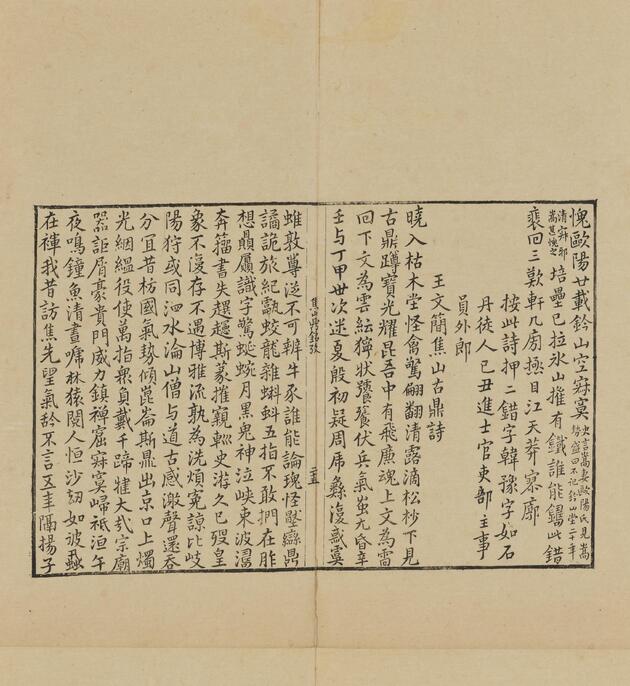 愧歐陽廿載鈐山空寂寞史言嵩妻歐陽氏見嵩
勢盛曰不記鈐山堂二十年
清寂邪
嵩甚愧之培壘已拉氷山摧有鐵誰能鑄此錯
裵回三歎軒几房極目江天莽寥廓
按此詩押二錯字韓豫字如石
丹徒人己丑進士官吏部主事
員外郎
王文簡焦山古鼎詩
曉入枯木堂怪禽驚翩翻清露滴松杪下見
古鼎蹲寶光耀昆吾中有飛廉魂上文為雷
回下文為雲紜獰狀饕餮伏兵氣蚩尤昏辛
壬与丁甲世次迷夏殷初疑周虎彝復惑虞
焦山鼎銘攷
二十五
蜼敦蕈迄不可辨牛豕誰能論瑰怪壓巒鼎
譎詭旅紀甗蛟龍雜蝌蚪五指不敢捫在昨
想贔屭識字驚蜿蜿月黒鬼神泣峽束波濤
奔籀書失趨斯篆摧窺史游久已殁皇
象不復存不遇博雅流孰為洗煩寃諒比岐
陽狩或同泗水淪山僧与道古感激聲還吞
分宜昔枋國氣勢傾崑崙斯鼎出京口上燭
光絪緼役使萬指衆負戴千蹄犍大哉宗廟
器詎屑豪貴門威力鎮禪窟寂寞歸祇洹午
夜鳴鐘魚清晝嘯林猿閱人恒沙劫如彼蝨
在褌我昔訪焦先望氣不言五年隔揚子